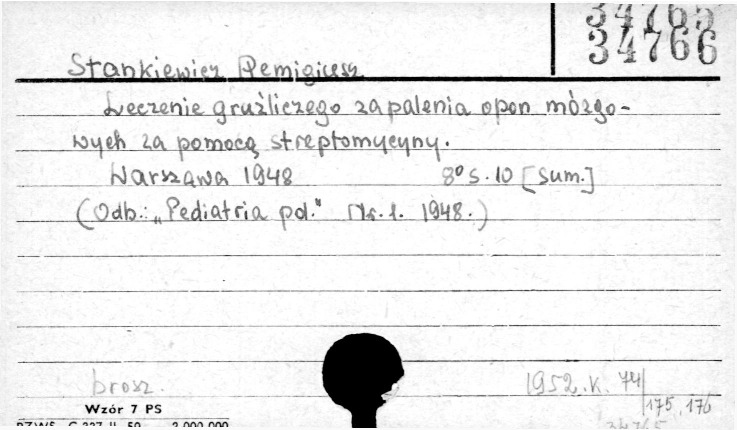 34765
34766
Stankiewicz Remigiusz
Leczenie gruźliczego zapalenia opon mózgo-
wych za pomocą streptomycyny.
Warszawa 1948 8° s. 10 [sum.]
(Odb.: „Pediatria pol." Nr. 1. 1948.)
brosz. 1952. K. 74
175, 176
Wzór 7 PS
34765